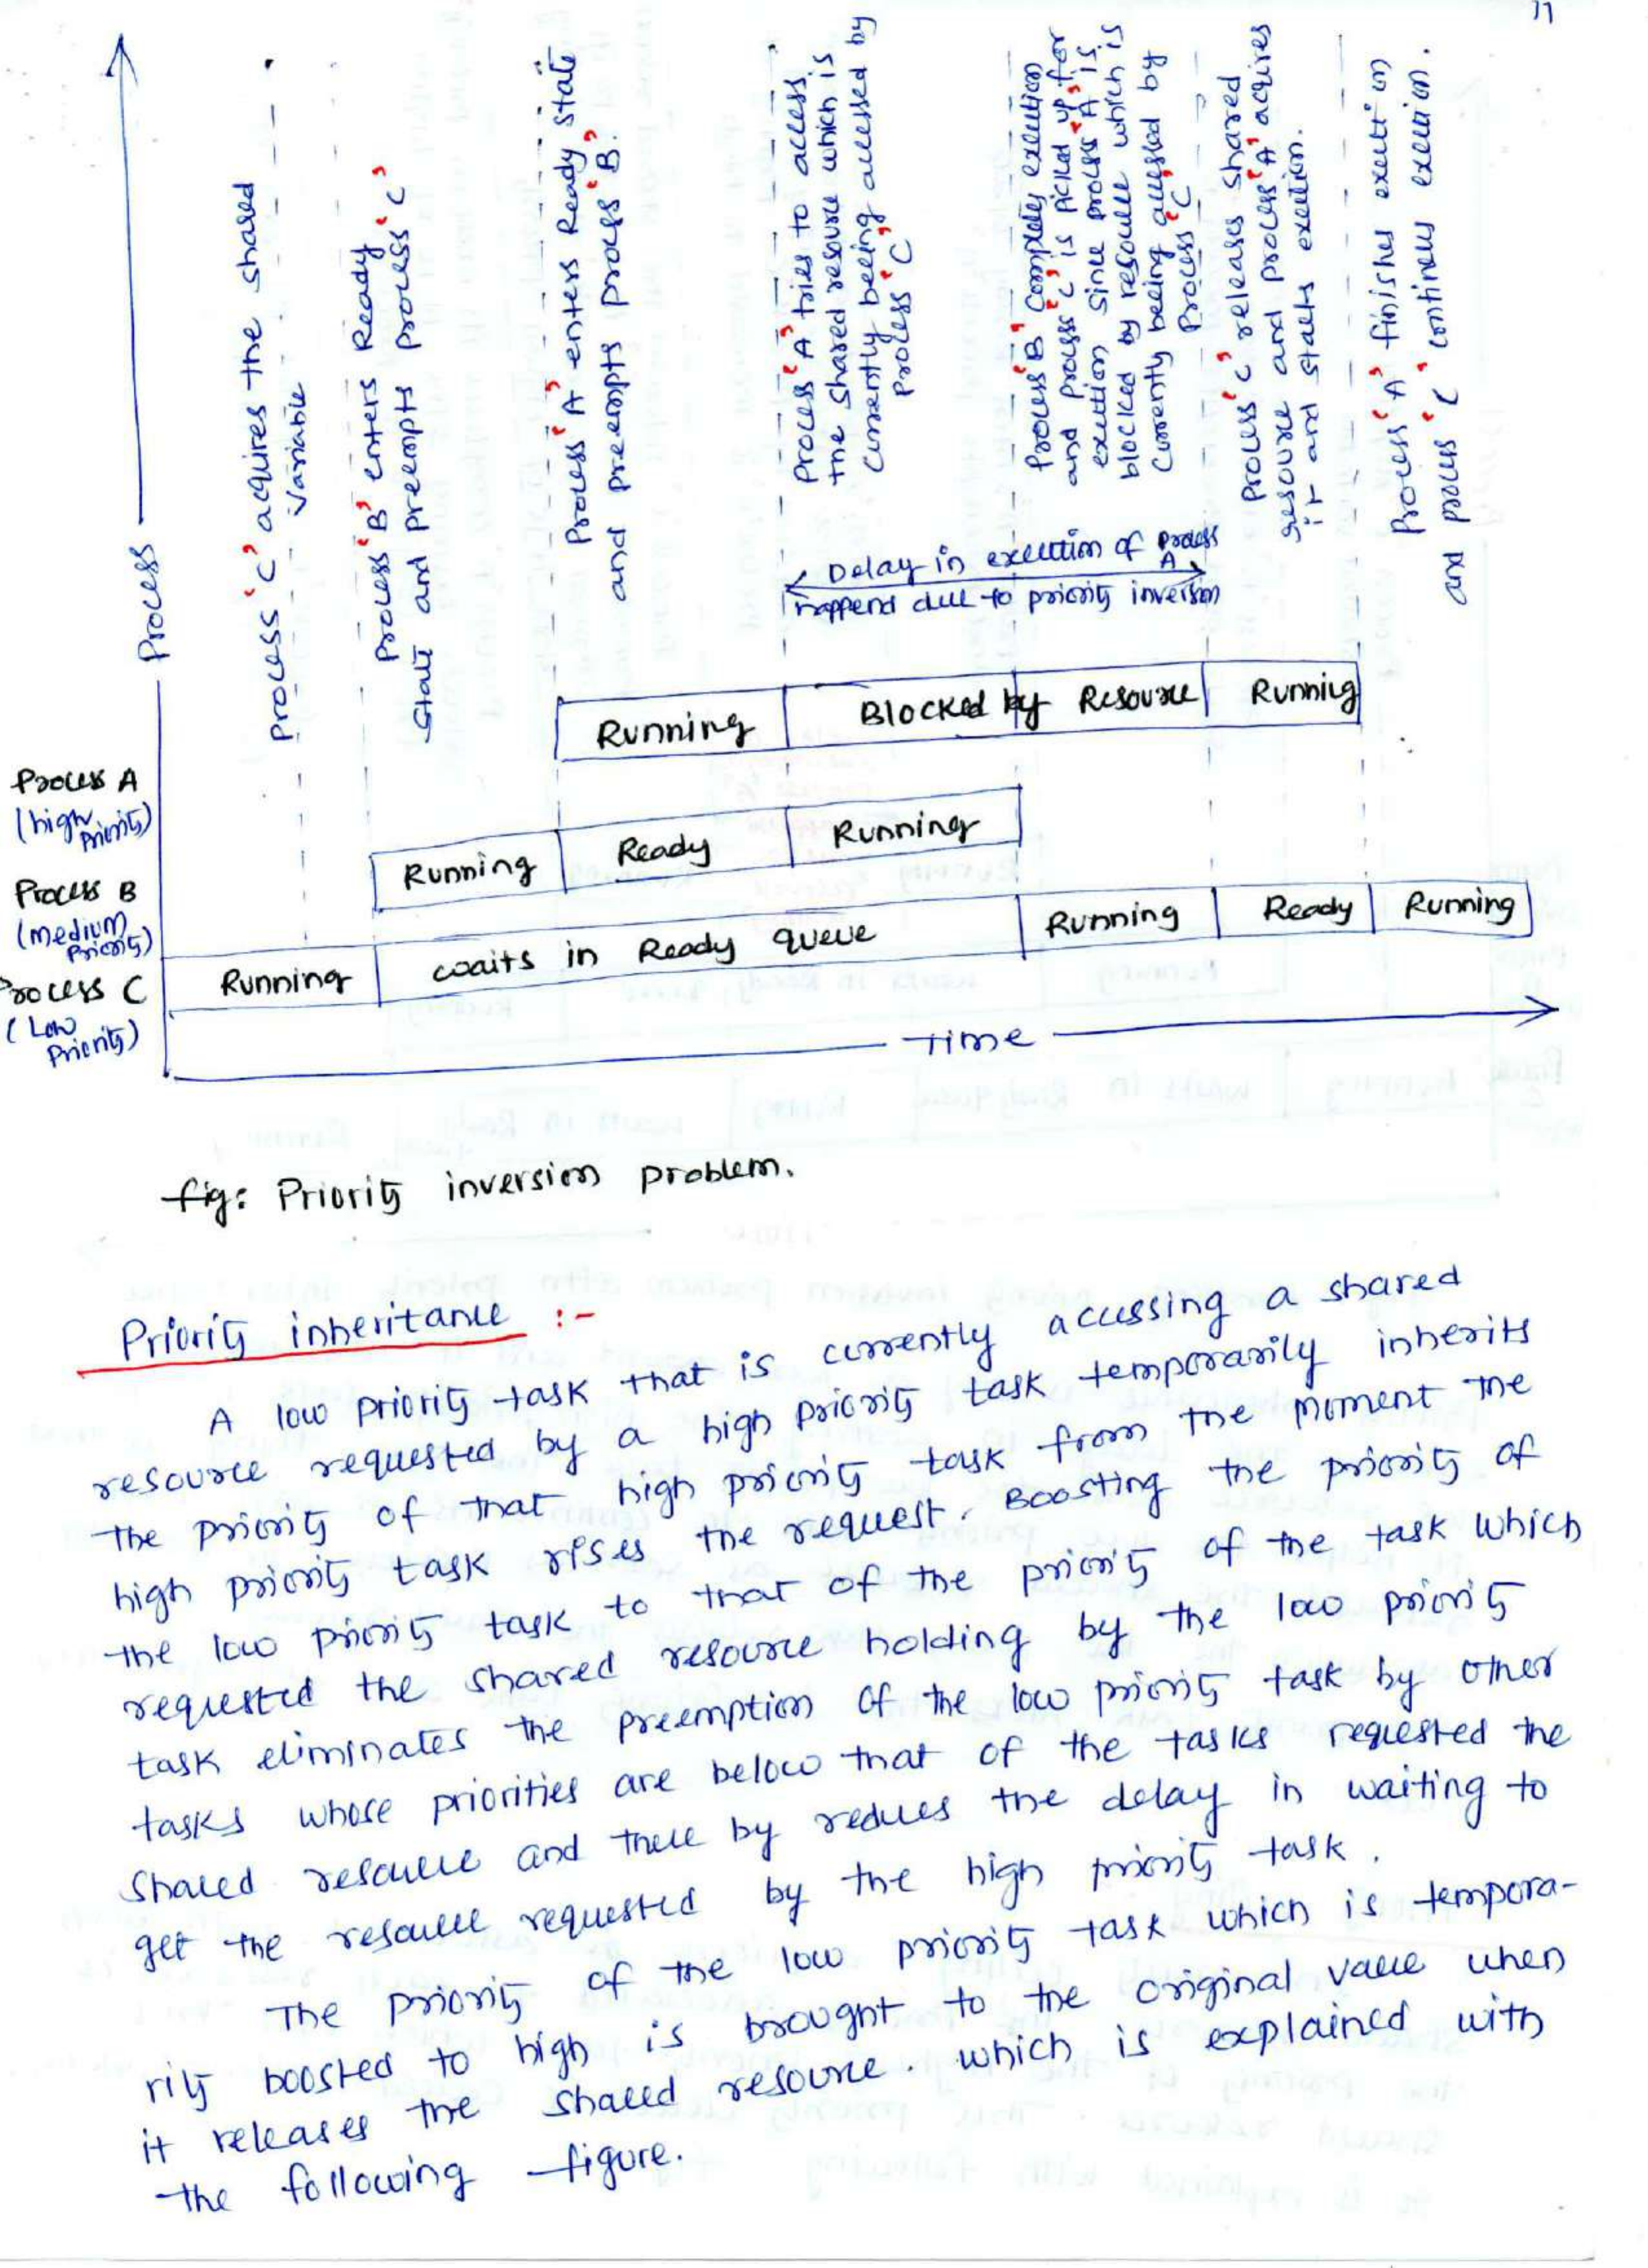 11
Process
Process 'C' acquires the shared
variable
Process 'B' enters Ready
state and preempts process 'C'
Process 'A' enters Ready state
and preempts process 'B'.
Process 'A' tries to access
the shared resource which is
currently beeing accessed by
process 'C'
Process 'B' Completes execution
and process 'C' is picked up for
execution Since process 'A' is
blocked by resource which is
Currently beeing accessed by
Process 'C'
Process 'C' releases shared
resource and process 'A' acquires
it and starts execution.
Process 'A' finishes execution
and process 'C' continues execution.
Delay in execution of process
A
happend due to priority inversion
Running
Blocked by Resource
Running
Process A
(high
Priority)
Running
Ready
Running
Process B
(medium
Priority)
Running
waits in Ready queue
Running
Ready
Running
Process C
(Low
Priority)
Time
fig: Priority inversion problem.
Priority inheritance :-
A low priority task that is currently accessing a shared
resource requested by a high priority task temporarily inherits
the priority of that high priority task from the moment the
high priority task rises the request. Boosting the priority of
the low priority task to that of the priority of the task which
requested the shared resource holding by the low priority
task eliminates the preemption of the low priority task by other
tasks whose priorities are below that of the tasks requested the
shared resource and there by reduces the delay in waiting to
get the resource requested by the high priority task.
The priority of the low priority task which is tempora-
rily boosted to high is brought to the original value when
it releases the shared resource. which is explained with
the following figure.